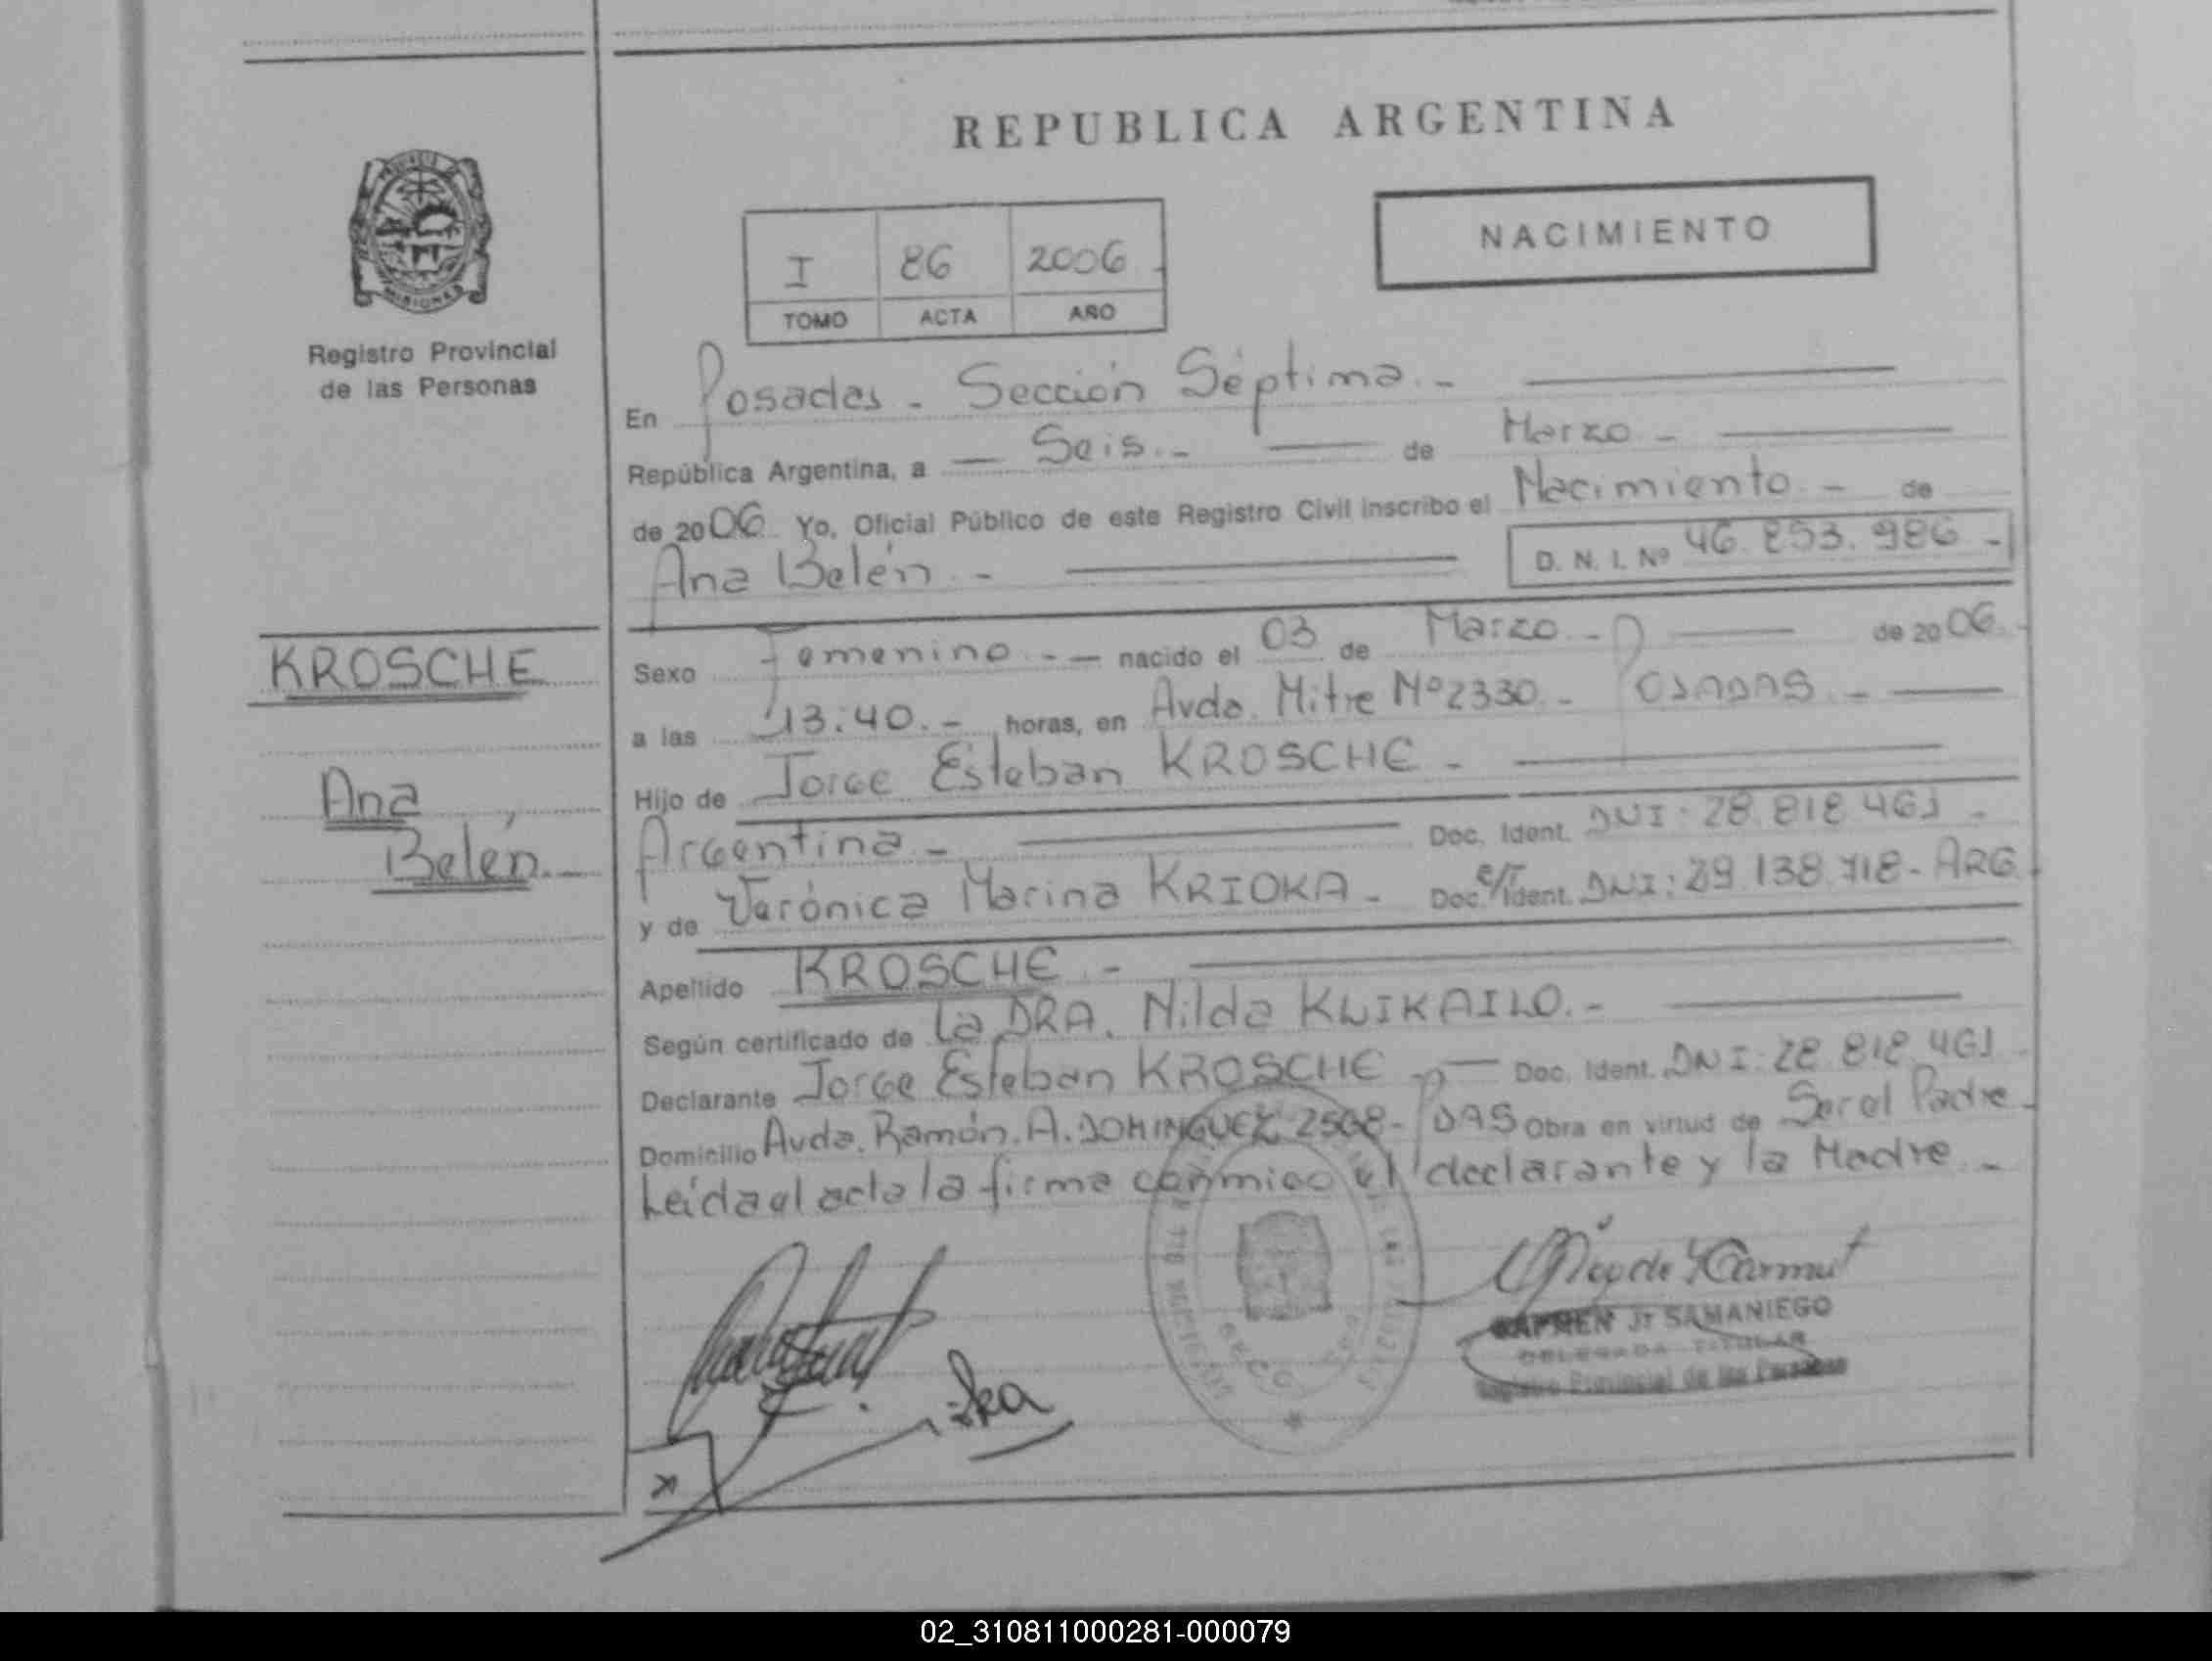 REPUBLICA ARGENTINA
NACIMIENTO
I 86 2006.
TOMO ACTA AÑO
Registro Provincial
de las Personas
En Posadas - Sección Séptima.-
República Argentina, a — Seis.- de Marzo -
de 2006. Yo, Oficial Público de este Registro Civil inscribo el Nacimiento - de
Ana Belén.- D. N. I. Nº 46.853.986 -
KROSCHE
Ana
Belén.-
Sexo Femenino.- — nacido el 03 de Marzo.- de 2006.
a las 13:40.- horas, en Avda. Mitre Nº 2330.- POSADAS.-
Hijo de Jorge Esteban KROSCHE -
Argentina.- Doc. Ident. DNI: 28.818.461 -
y de Verónica Marina KRIOKA - Doc. Ident. DNI: 29.138.718- ARG.
Apellido KROSCHE.-
Según certificado de la DRA. Nilda KWIKAILO.-
Declarante Jorge Esteban KROSCHE - Doc. Ident. DNI: 28.818.461
Domicilio Avda. Ramón. A. DOMINGUEZ 2568- PDAS Obra en virtud de Ser el Padre -
Leída el acta la firma conmigo el declarante y la Madre.-
CARMEN J. SAMANIEGO
DELEGADA TITULAR
Registro Provincial de las Personas
02_310811000281-000079